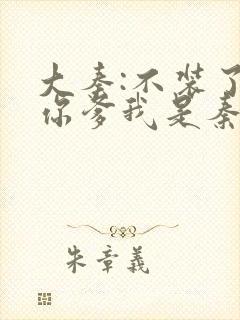 大秦:不装了
你爹我是秦
朱章义